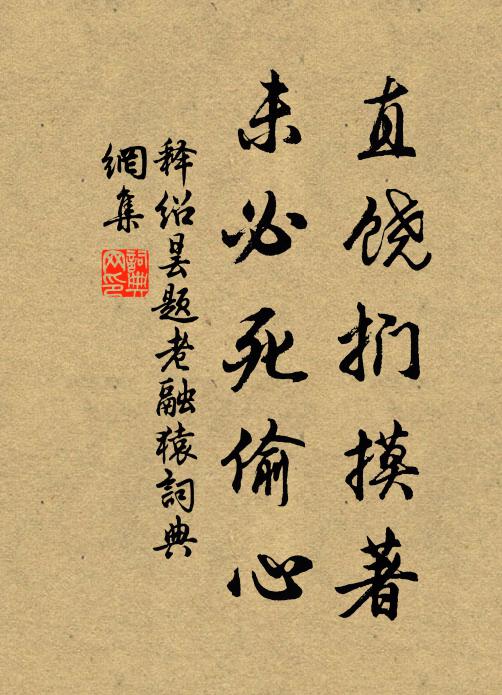 直饶扪摸著
未必死偷心
释绍昙题老融猿詞典
網集
詞典
网印